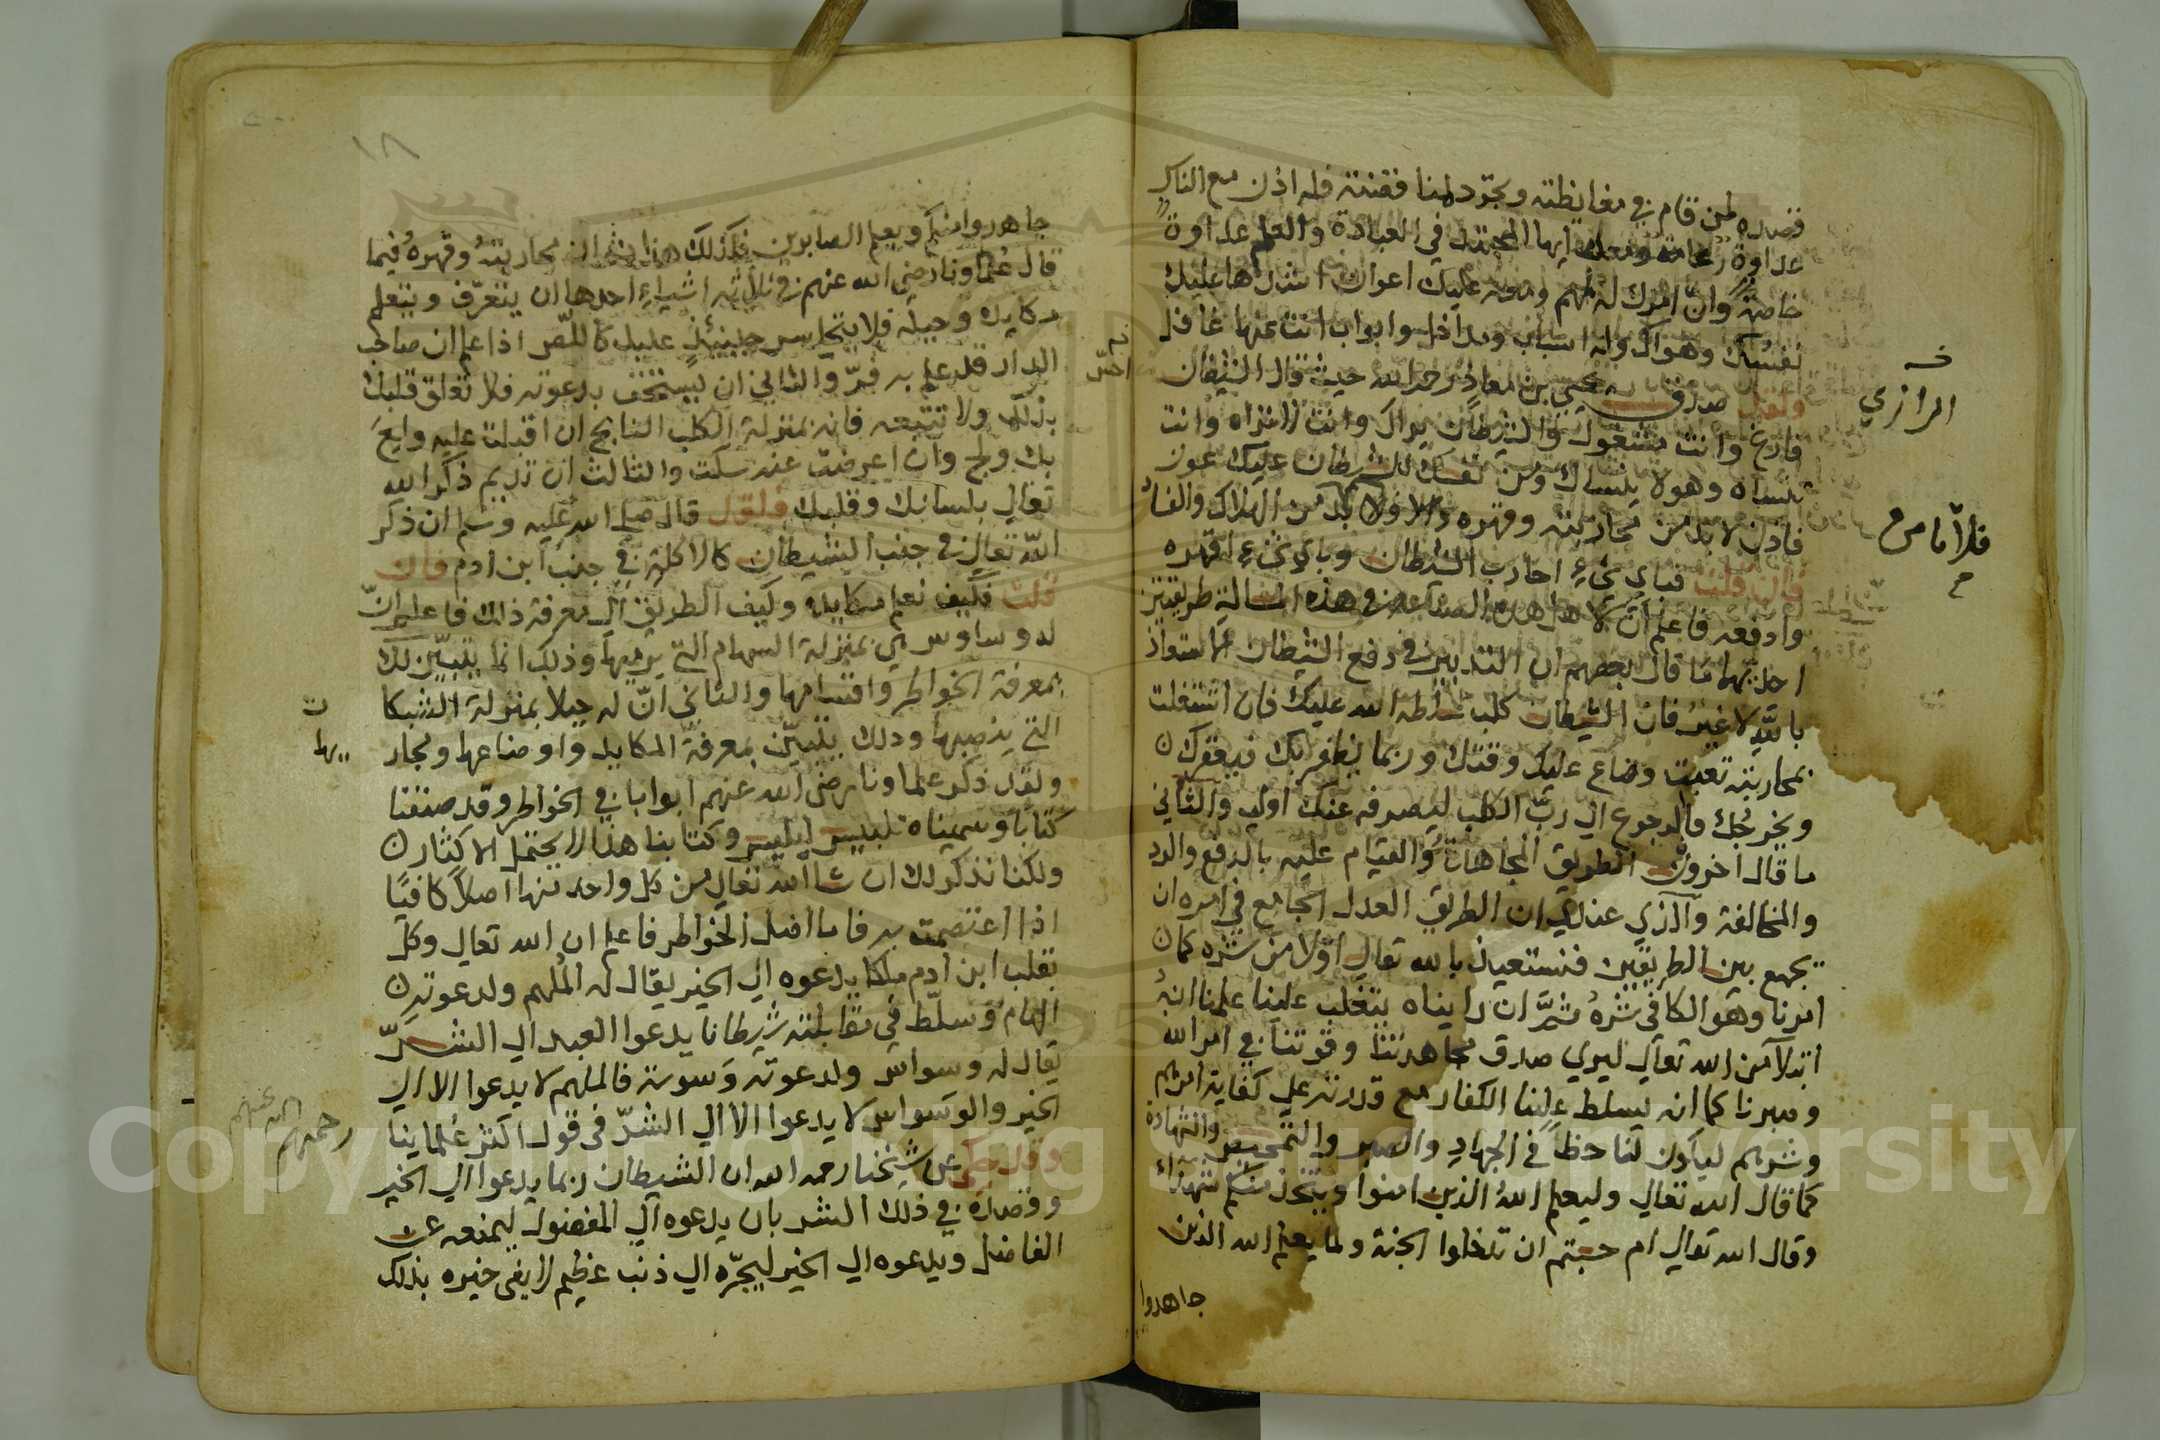 قصده لمن قام في مغايظته وتجرد لمناقضته فله اذن مع الناس
عداوة عامة ومعك ايها المجتهد في العبادة والعلم عداوة
خاصة وان امرك له لمهم ومعه عليك اعوان اشدها عليك
نفسك وهواك وله اسباب ومداخل وابواب انت عنها غافل
ولقد صدق يحيى بن معاذ رحمه الله حيث قال الشيطان
فارغ وانت مشغول والشيطان يراك وانت لا تراه وانت
تنساه وهو لا ينساك ومن نفسك للشيطان عليك عون
فاذن لابد من محاربته وقهره والا فلا بد من الهلاك والفساد
فان قلت فباي شيء احارب الشيطان وباي شيء اقهره
وادفعه فاعلم ان لاهل هذه الصناعة في هذه المسالة طريقين
احديهما ما قال بعضهم ان التدبير في دفع الشيطان الاستعاذة
بالله لا غير فان الشيطان كلب سلطه الله عليك فان اشتغلت
بمحاربته تعبت وضاع عليك وقتك وربما يظفر بك فيعقرك
ويجرحك فالرجوع الى رب الكلب ليصرفه عنك اولى والثاني
ما قال اخرون الطريق المجاهدة والقيام عليه بالدفع والرد
والمخالفة والذي عندي ان الطريق العدل الجامع في امره ان
تجمع بين الطريقين فنستعيذ بالله تعالى اولا من شره كما
امرنا وهو الكافي شره ثم ان رايناه يتغلب علينا علمنا انه
ابتلا من الله تعالى ليري صدق مجاهدتنا وقوتنا في امر الله
وصبرنا كما انه يسلط علينا الكفار مع قدرته على كفاية امرهم
وشرهم ليكون لنا حظا في الجهاد والصبر والتمحيص والشهادة
كما قال الله تعالى وليعلم الله الذين امنوا ويتخذ منكم شهداء
وقال الله تعالى ام حسبتم ان تدخلوا الجنة ولما يعلم الله الذين
جاهدوا
الرازي
١٨
جاهدوا منكم ويعلم الصابرين فكذلك هذا ثم ان محاربته وقهره فيما
قال علماونا رضي الله عنهم في ثلاثة اشياء احدها ان يتعرف ويتعلم
مكايده وحيله فلا يتجاسر حينئذ عليك كاللص اذا علم ان صاحب
الدار قد علم به فر والثاني ان يستخف بدعوته فلا تعلق قلبك
بذلك ولا تتبعه فانه بمنزلة الكلب النابح ان اقبلت عليه وابع
بك ولج وان اعرضت عنه سكت والثالث ان تديم ذكر الله
تعالى بلسانك وقلبك فلقول قال صلى الله عليه وسلم ان ذكر
الله تعالى في جنب الشيطان كالاكلة في جنب ابن ادم فان
قلت فكيف نعلم مكايده وكيف الطريق الى معرفة ذلك فاعلم ان
له وساوس هي بمنزلة السهام التي يرميها وذلك انما يتبين لك
بمعرفة الخواطر واقسامها والثاني ان له حيلا بمنزلة الشبكا
التي ينصبها وذلك يتبين بمعرفة المكايد واوضاعها ومجار
ولقد ذكر علماونا رضى الله عنهم ابوابا في الخواطر وقد صنفنا
كتابا وسميناه تلبيس ابليس وكتابنا هذا لا يحتمل الاكثار
ولكنا نذكر لك ان شا الله تعالى من كل واحد منها اصلا كافيا
اذا اعتصمت به فاما اصل الخواطر فاعلم ان الله تعالى وكل
بقلب ابن ادم ملكا يدعوه الى الخير يقال له الملهم ولدعوته
الهام وسلط في مقابلته شيطانا يدعوا العبد الى الشر
يقال له وسواس ولدعوته وسوسة فالملهم لا يدعوا الا الى
الخير والوسواس لا يدعوا الا الى الشر في قول اكثر علماينا
وقد حكي عن شيخنا رحمه الله ان الشيطان ربما يدعوا الى الخير
وقصده في ذلك الشر بان يدعوه الى المفضول ليمنعه عن
الفاضل ويدعوه الى الخير ليجره الى ذنب عظيم لا يفى خيره بذلك
ت
يها
رحمهم الله
Copyright © King Saud University